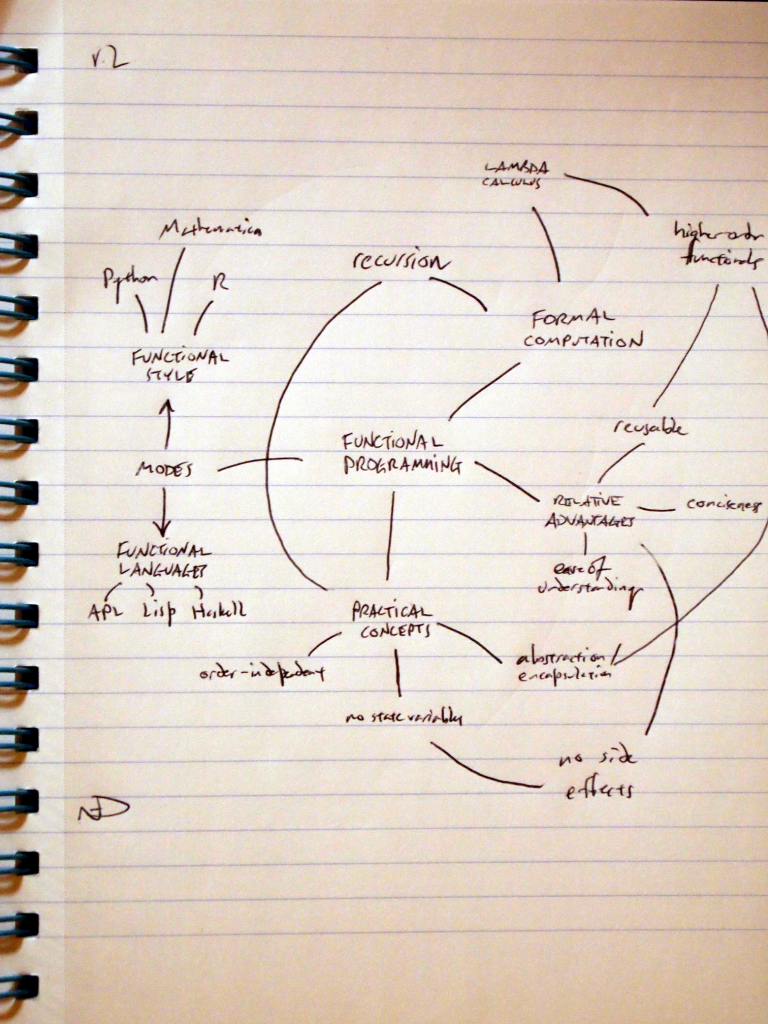 v.2
LAMBDA
CALCULUS
Mathematica
higher-order
functionals
recursion
Python
R
FORMAL
COMPUTATION
FUNCTIONAL
STYLE
reusable
FUNCTIONAL
PROGRAMMING
MODES
RELATIVE
ADVANTAGES
conciseness
FUNCTIONAL
LANGUAGES
ease of
understanding
APL
Lisp
Haskell
PRACTICAL
CONCEPTS
order-independent
abstraction/
encapsulation
no state variables
no side
effects